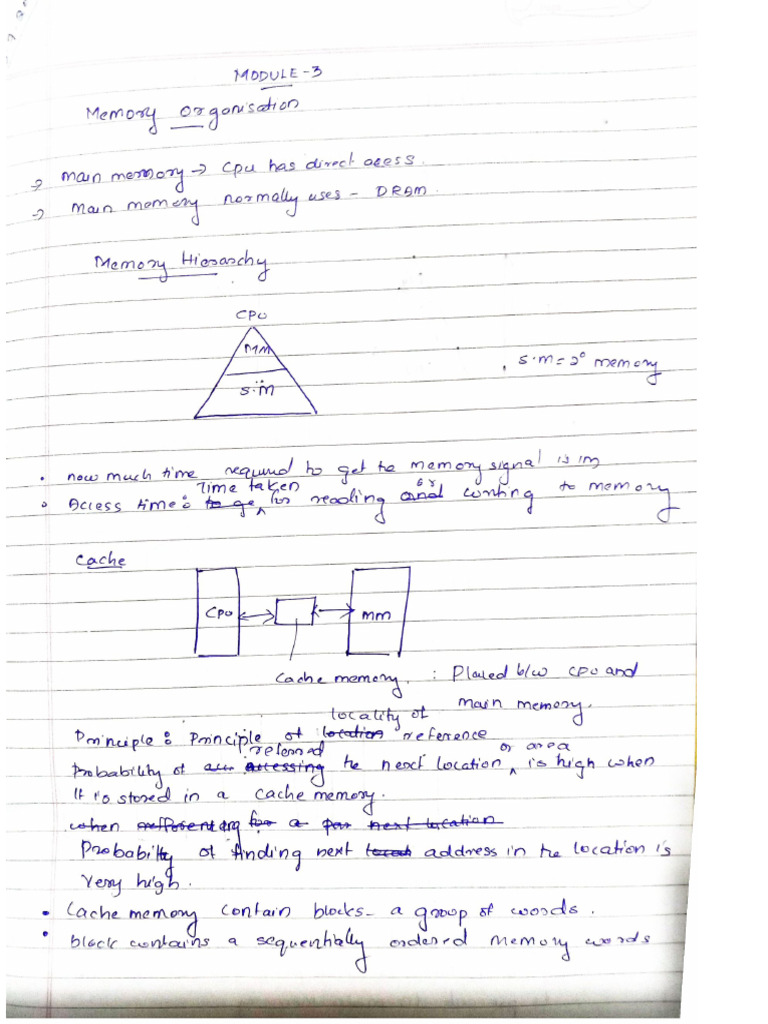 MODULE-3
Memory Organisation
→ Main memory → CPU has direct acess.
→ Main memory normally uses - DRAM.
Memory Hierarchy
CPU
MM
S.M
S.M = 2° memory
• how much time required to get the memory signal is im
Time taken or
• Access time: to ge ^ for reading and writing to memory
Cache
CPU
MM
Cache memory. : Placed b/w CPU and
main memory.
locality of
Principle: Principle of location reference
referred or area
Probability of accessing the next location ^ is high when
It is stored in a cache memory.
when for a next location
Probability of finding next address in the location is
very high.
• Cache memory contain blocks - a group of words.
• block contains a sequentially ordered memory words